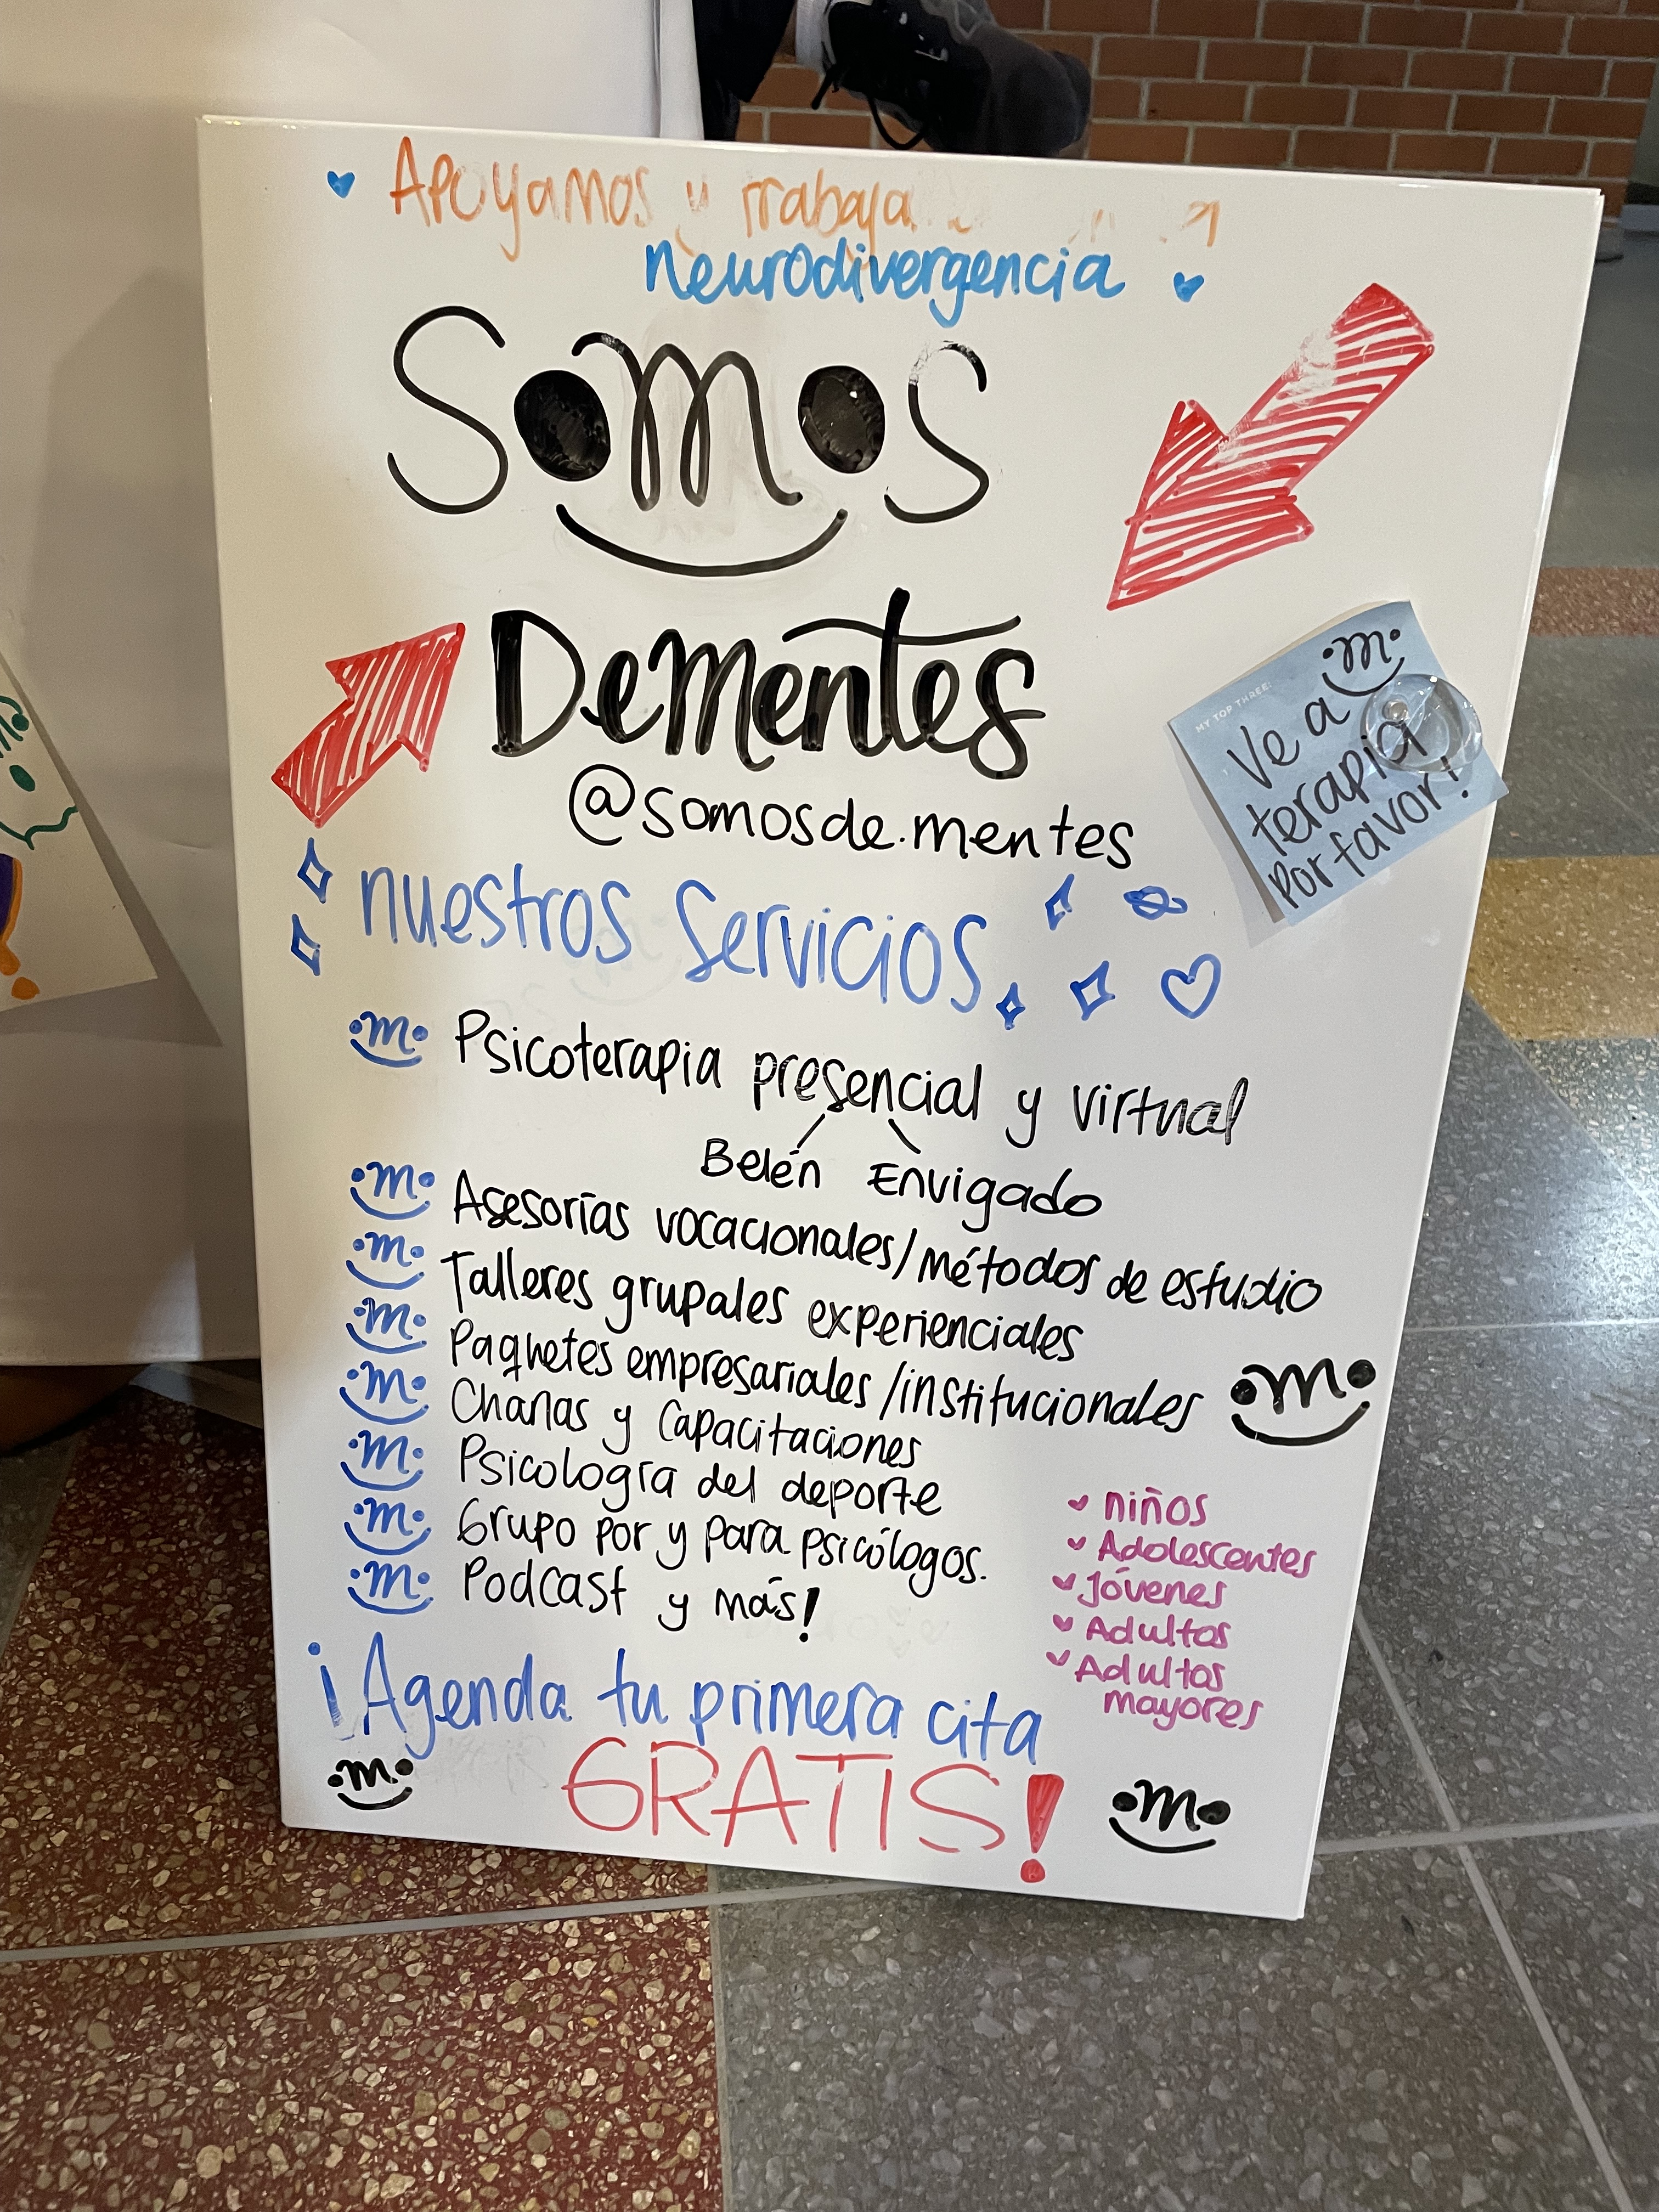 Apoyamos y
neurodivergencia
Somos
DeMentes
@somosde.mentes
MY TOP THREE:
Ve a m
terapia
por favor!
nuestros servicios
m Psicoterapia presencial y virtual
Belén Envigado
m Asesorías vocacionales/métodos de estudio
m Talleres grupales experienciales
m Paquetes empresariales/institucionales m
m Charlas y capacitaciones
m Psicología del deporte
m Grupo por y para psicólogos.
m Podcast y más!
niños
Adolescentes
Jóvenes
Adultos
Adultos
mayores
¡Agenda tu primera cita
m GRATIS! m